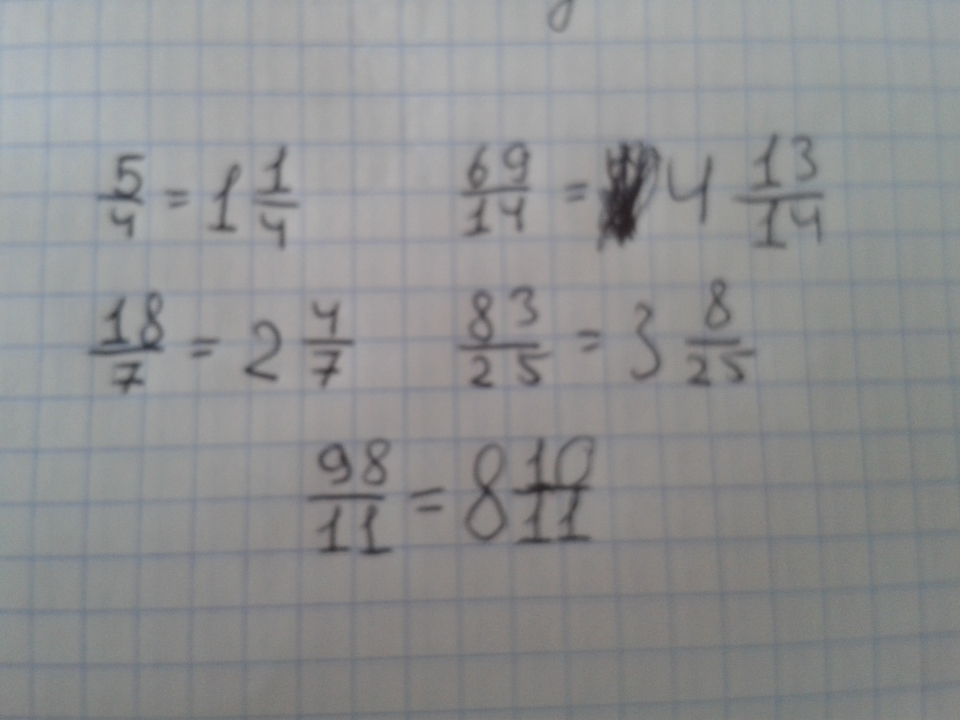 5/4 = 1 1/4    69/14 = 4 13/14
18/7 = 2 4/7    83/25 = 3 8/25
98/11 = 8 10/11